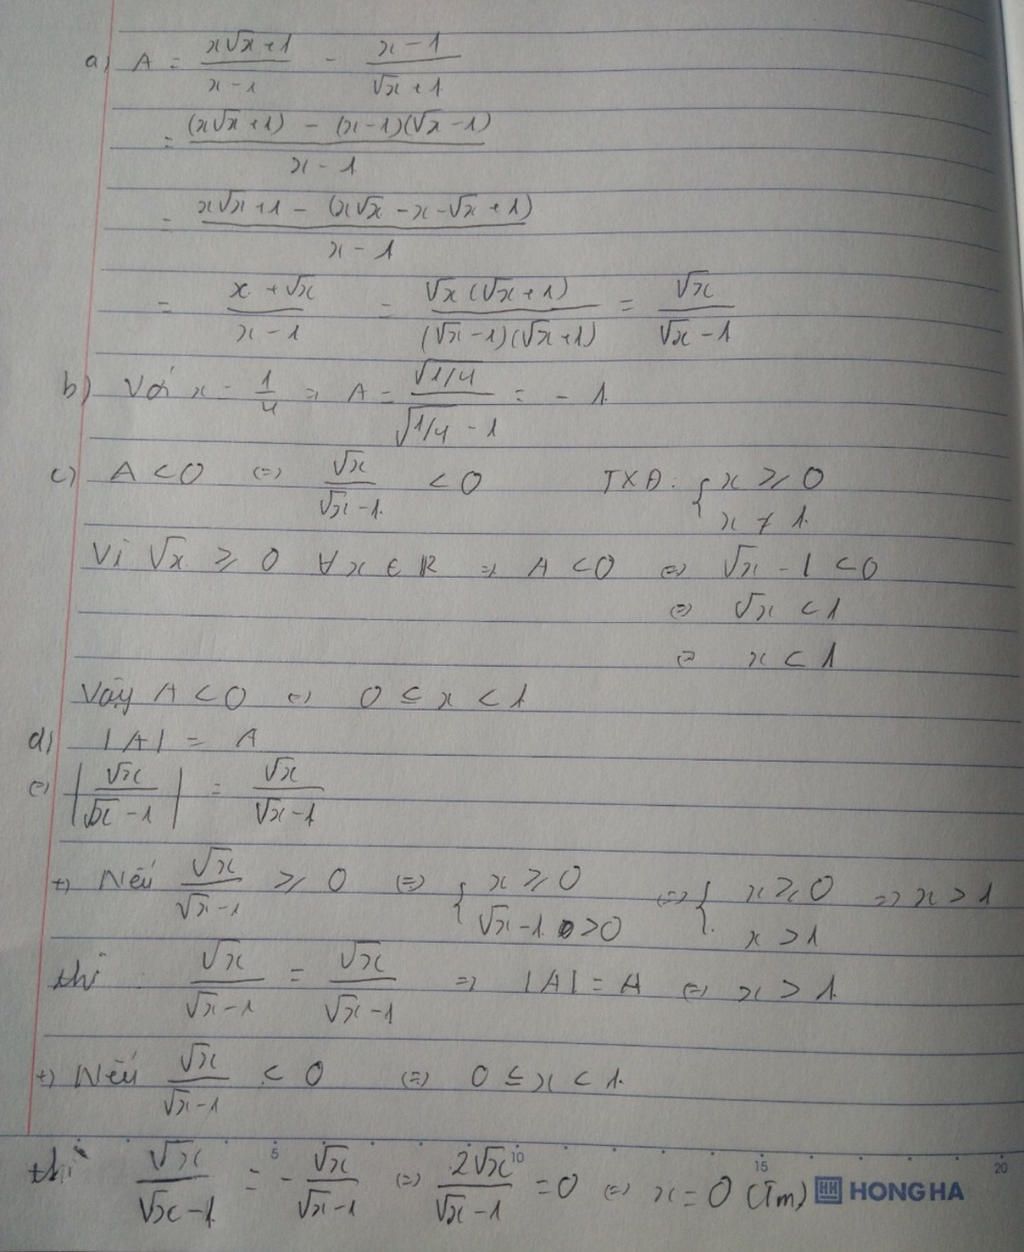 a) A = (x√x + 1)/(x - 1) - (x - 1)/(√x + 1)
= ((x√x + 1) - (x - 1)(√x - 1))/(x - 1)
= (x√x + 1 - (x√x - x - √x + 1))/(x - 1)
= (x + √x)/(x - 1) = (√x(√x + 1))/((√x - 1)(√x + 1)) = √x/(√x - 1)
b) Với x = 1/4 => A = √(1/4)/(√(1/4) - 1) = - 1.
c) A < 0 <=> √x/(√x - 1) < 0 TXĐ: { x ≥ 0
x ≠ 1.
Vì √x ≥ 0 ∀x ∈ R => A < 0 <=> √x - 1 < 0
<=> √x < 1
<=> x < 1
Vậy A < 0 <=> 0 ≤ x < 1
d) |A| = A
<=> |√x/(√x - 1)| = √x/(√x - 1)
+) Nếu √x/(√x - 1) ≥ 0 <=> { x ≥ 0 <=> { x ≥ 0 => x > 1
√x - 1 > 0 x > 1
thì √x/(√x - 1) = √x/(√x - 1) => |A| = A <=> x > 1.
+) Nếu √x/(√x - 1) < 0 <=> 0 ≤ x < 1.
5 10 15 20
thì √x/(√x - 1) = - √x/(√x - 1) <=> 2√x/(√x - 1) = 0 <=> x = 0 (Tm)
HH HONG HA